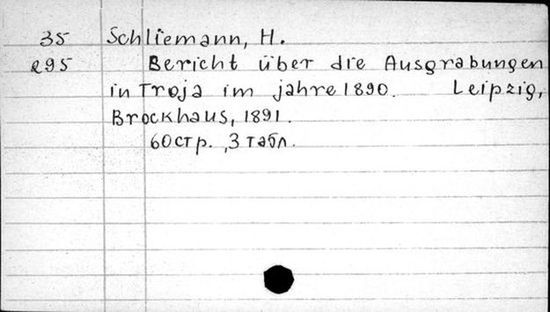 35 Schliemann, H.
295 Bericht über die Ausgrabungen
in Troja im jahre 1890. Leipzig,
Brockhaus, 1891.
60стр., 3 табл.